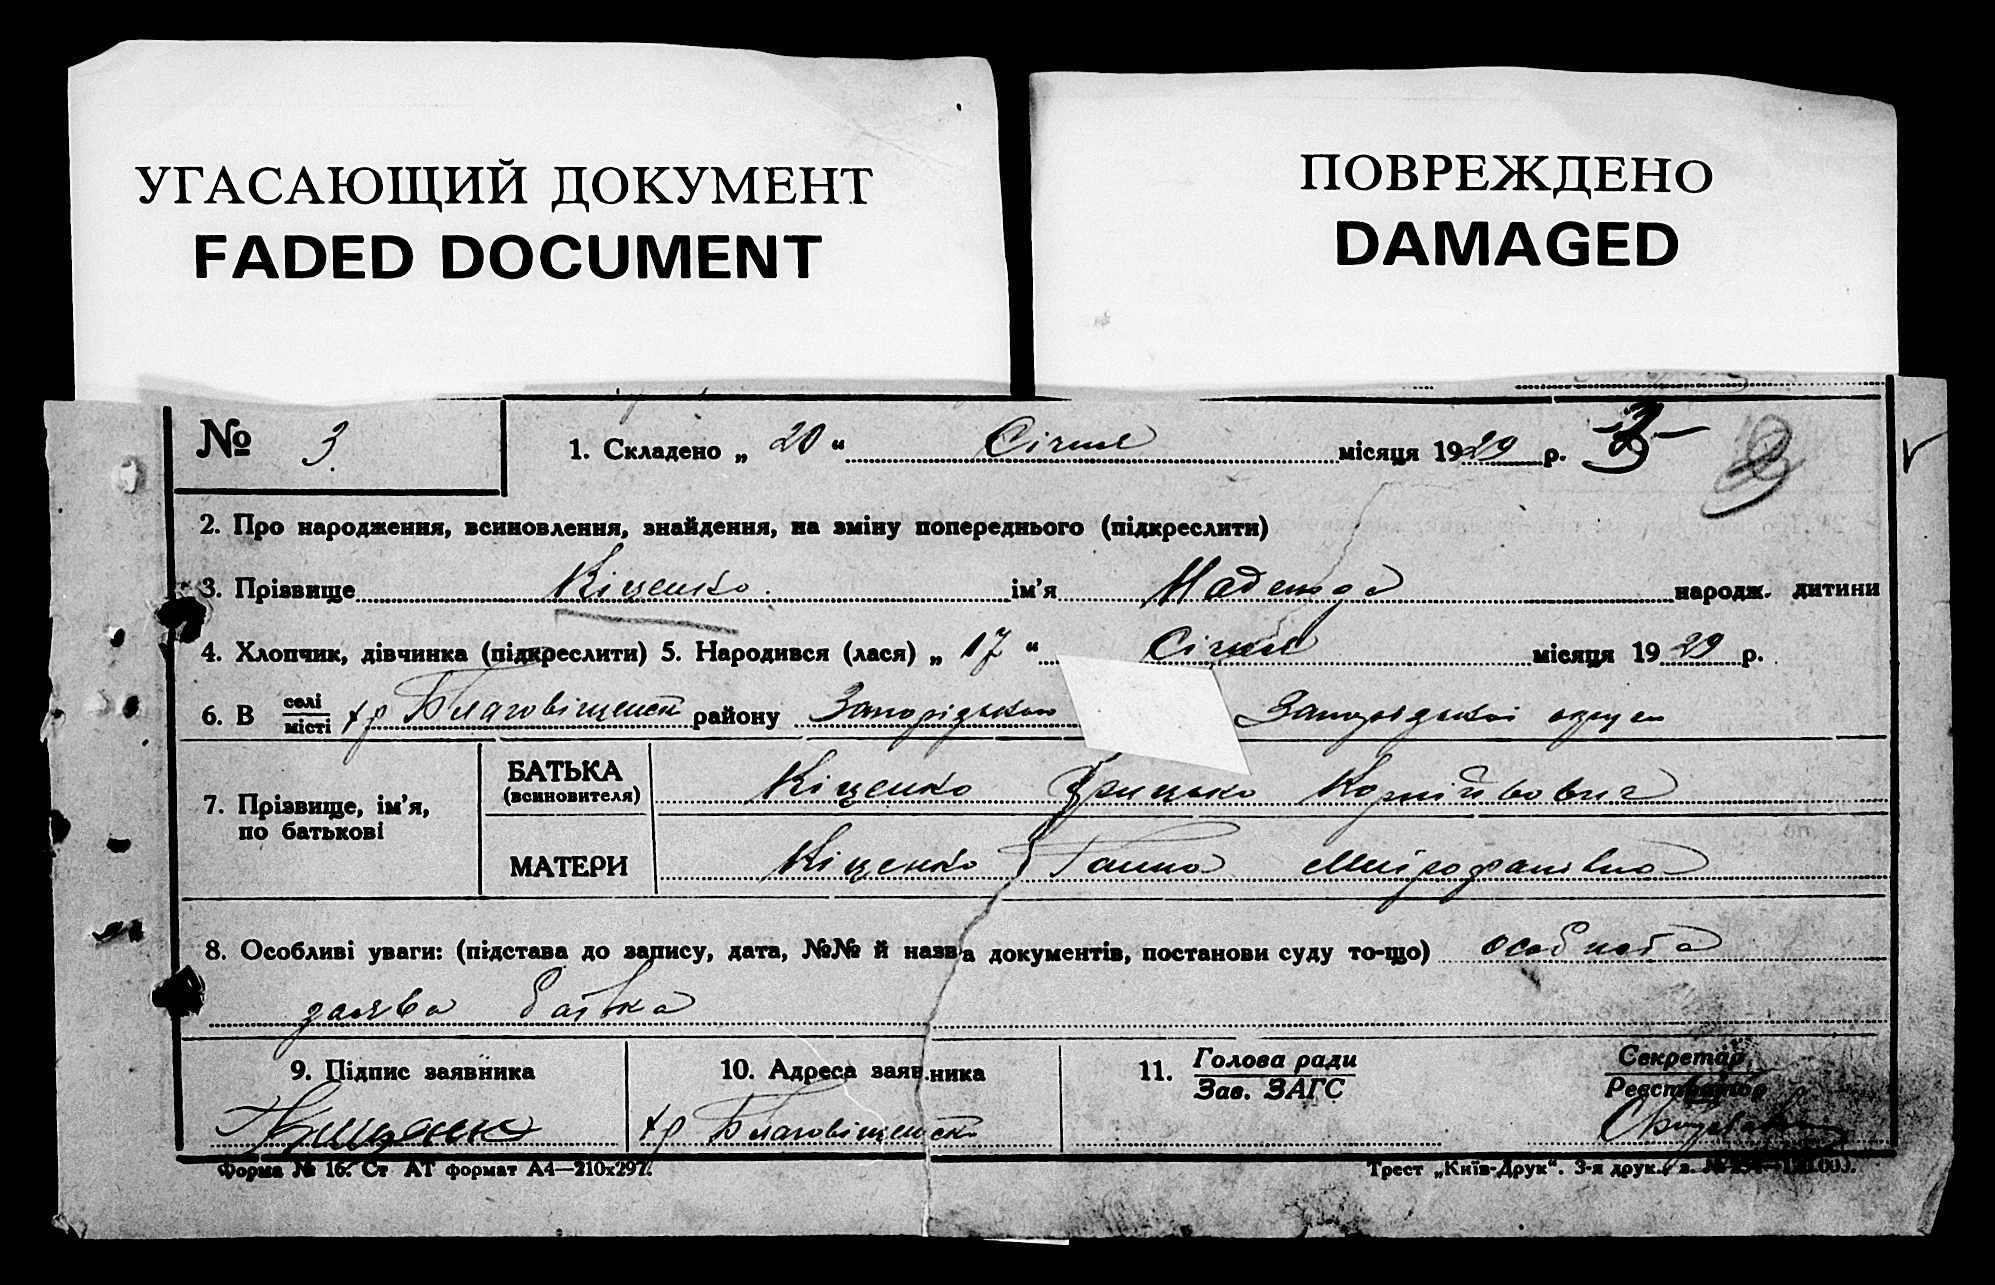 УГАСАЮЩИЙ ДОКУМЕНТ
FADED DOCUMENT
ПОВРЕЖДЕНО
DAMAGED
№ 3. 1. Складено „ 20 “ Січня місяця 1929 р. 3
2. Про народження, всиновлення, знайдення, на зміну попереднього (підкреслити)
3. Прізвище Кіценко. ім'я Надежда народж. дитини
4. Хлопчик, дівчинка (підкреслити) 5. Народився (лася) „ 17 “ Січня місяця 1929 р.
6. В селі місті хр Благовіщенск району Запорізького Запорізької округи
7. Прізвище, ім'я, по батькові
БАТЬКА (всиновителя) Кіценко Грицько Корнійович
МАТЕРИ Кіценко Ганна Митрофанівна
8. Особливі уваги: (підстава до запису, дата, №№ й назва документів, постанови суду то-що) особиста
заява батька
9. Підпис заявника 10. Адреса заявника 11. Голова ради Зав. ЗАГС Секретар Реєстратор
хр Благовіщенск
Форма № 16. Ст АТ формат А4—210х297. Трест „Київ-Друк“. 3-я друк.